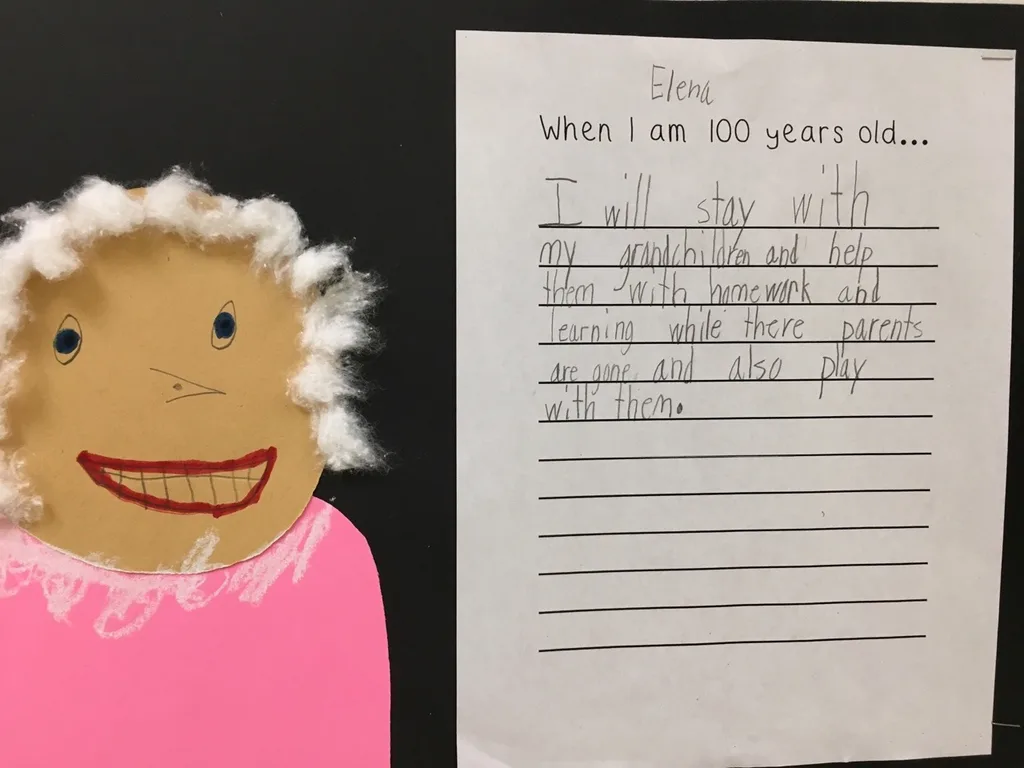 Elena
When I am 100 years old...
I will stay with
my grandchildren and help
them with homework and
learning while there parents
are gone and also play
with them.